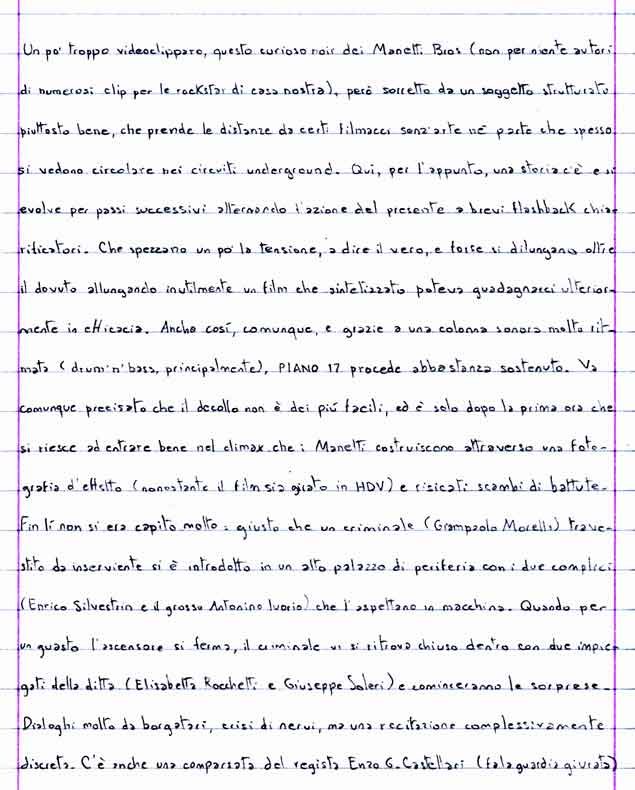 Un po' troppo videoclipparo, questo curioso noir dei Manetti Bros (non per niente autori
di numerosi clip per le rockstar di casa nostra), però sorretto da un soggetto strutturato
piuttosto bene, che prende le distanze da certi filmacci senz'arte né parte che spesso
si vedono circolare nei circuiti underground. Qui, per l'appunto, una storia c'è e si
evolve per passi successivi alternando l'azione del presente a brevi flashback chia-
rificatori. Che spezzano un po' la tensione, a dire il vero, e forse si dilungano oltre
il dovuto allungando inutilmente un film che sintetizzato poteva guadagnarci ulterior-
mente in efficacia. Anche così, comunque, e grazie a una colonna sonora molto rit-
mata (drum'n'bass, principalmente), PIANO 17 procede abbastanza sostenuto. Va
comunque precisato che il decollo non è dei più facili, ed è solo dopo la prima ora che
si riesce ad entrare bene nel climax che i Manetti costruiscono attraverso una foto-
grafia d'effetto (nonostante il film sia girato in HDV) e risicati scambi di battute.
Fin lì non si era capito molto: giusto che un criminale (Giampaolo Morelli) trave-
stito da inserviente si è introdotto in un alto palazzo di periferia con i due complici
(Enrico Silvestrin e il grosso Antonino Iuorio) che l'aspettano in macchina. Quando per
un guasto l'ascensore si ferma, il criminale vi si ritrova chiuso dentro con due impie-
gati della ditta (Elisabetta Rocchetti e Giuseppe Soleri) e cominceranno le sorprese.
Dialoghi molto da borgatari, crisi di nervi, ma una recitazione complessivamente
discreta. C'è anche una comparsata del regista Enzo G. Castellari (fa la guardia giurata)